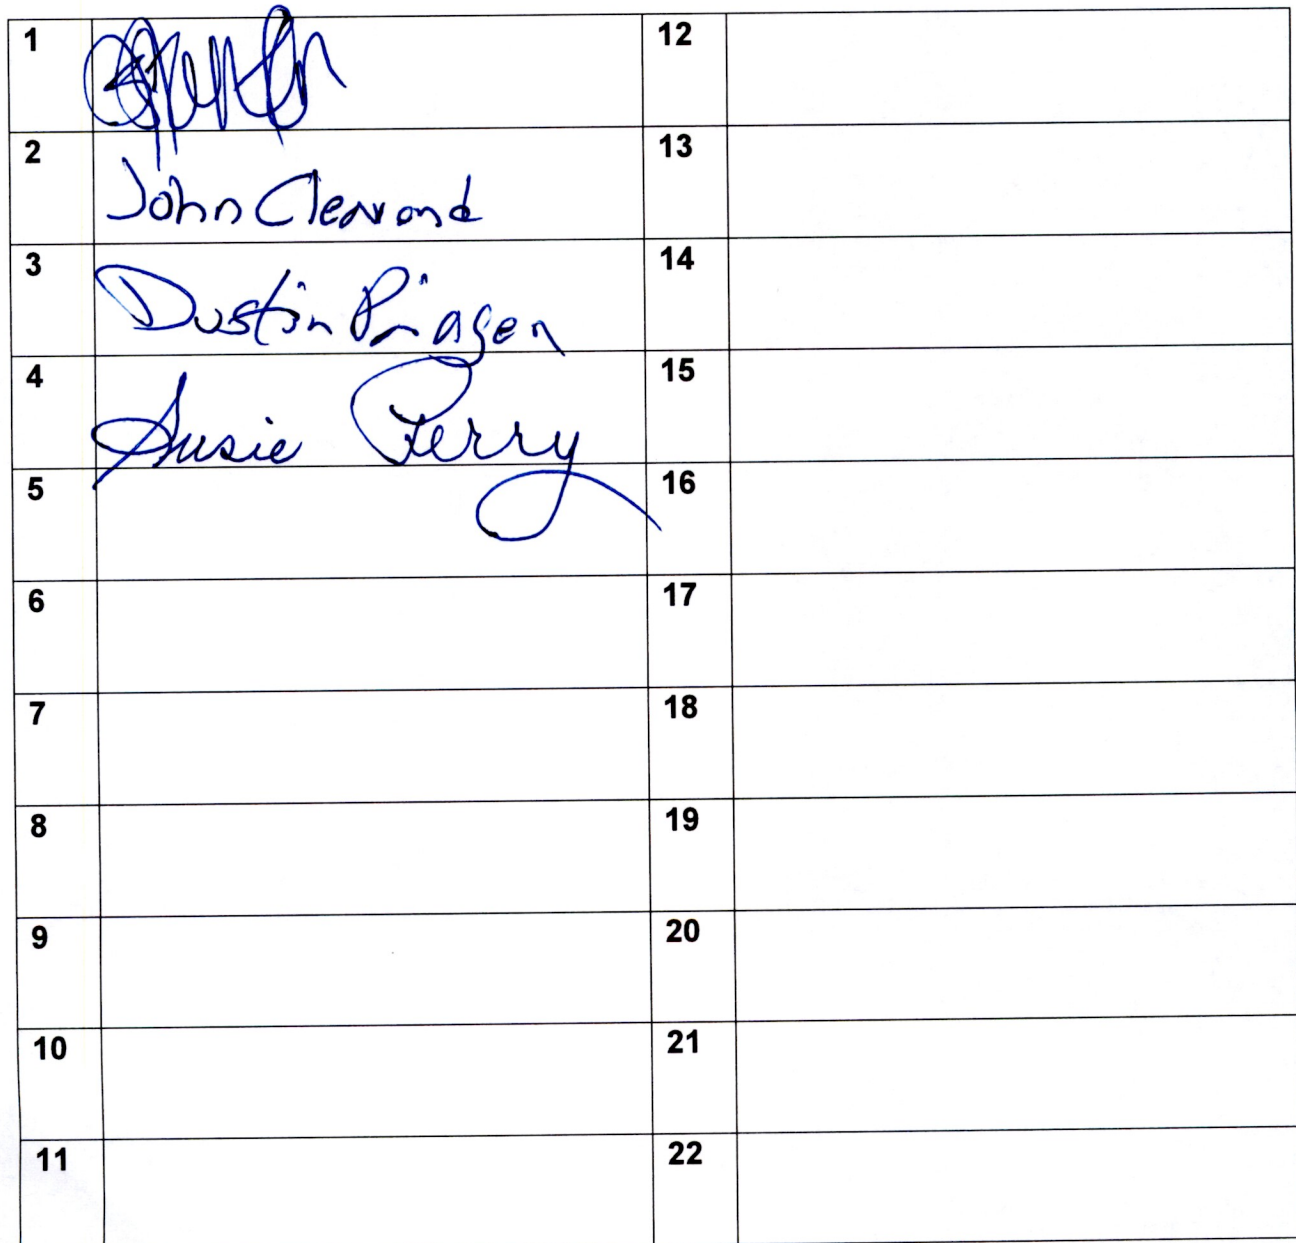 1
12
2 John Clevond
13
3 Dustin
14
4 Susie Perry
15
5
16
6
17
7
18
8
19
9
20
10
21
11
22